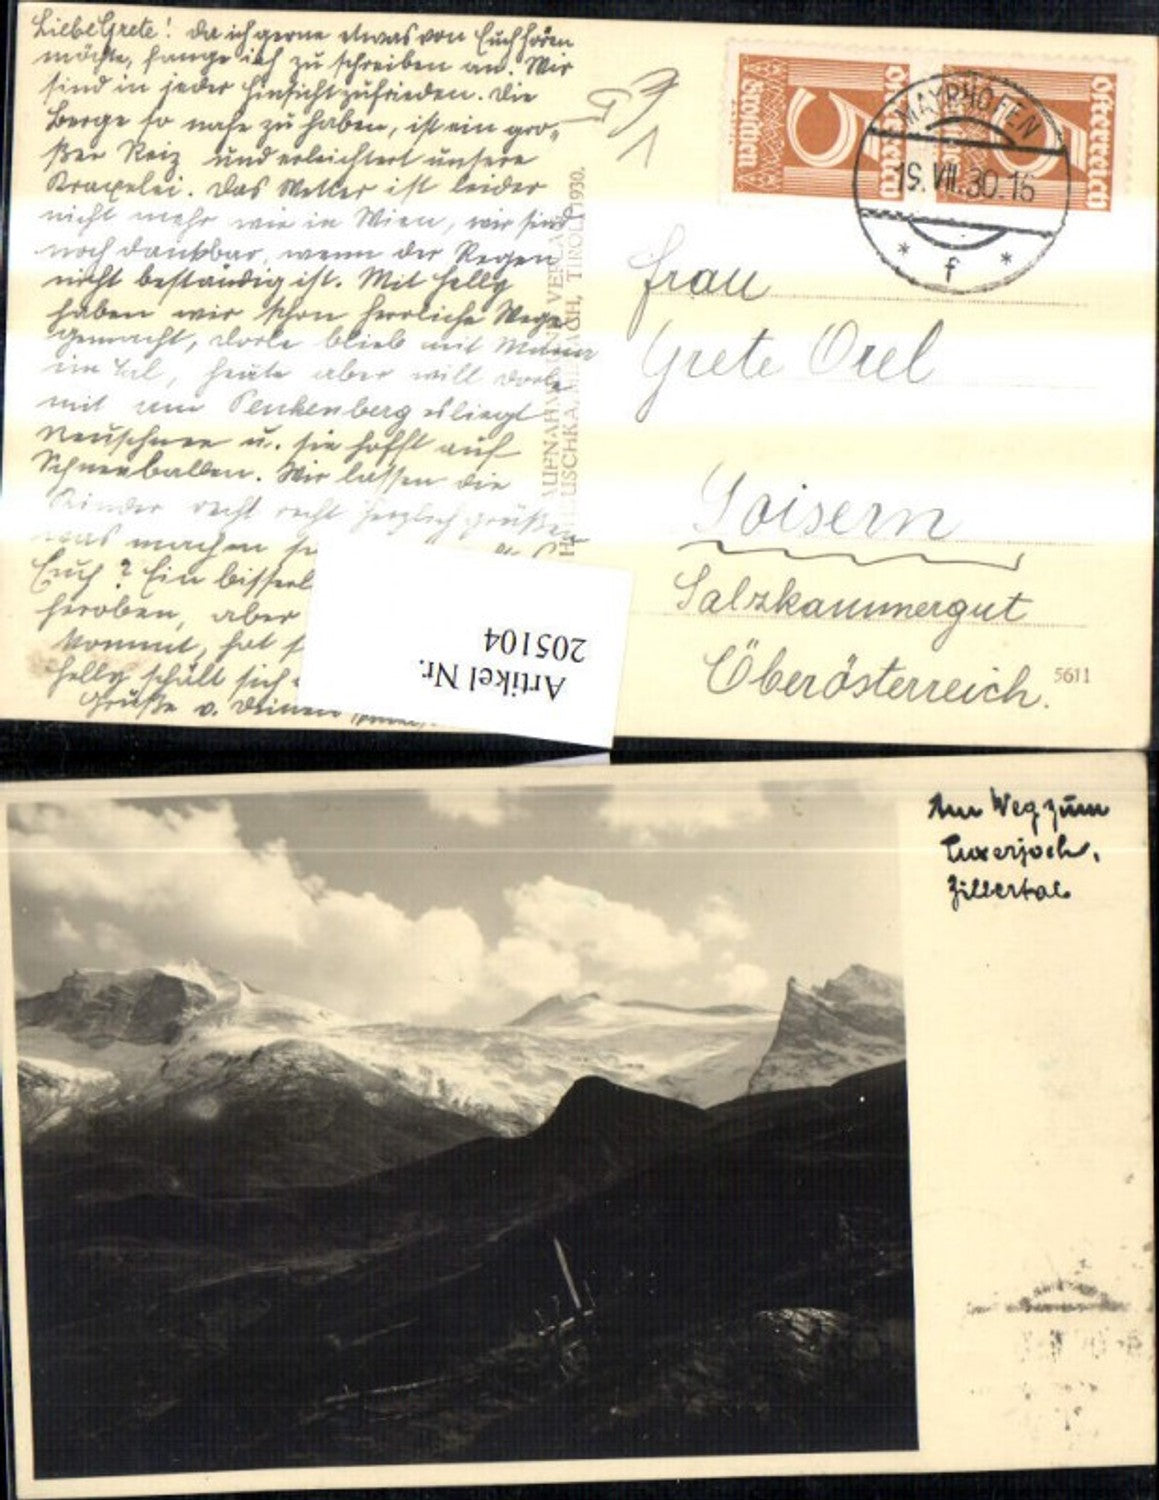 Liebe Grete! Da ich gerne etwas von Euch hören
möchte, fange ich zu schreiben an. Wir
sind in jeder Hinsicht zufrieden. Die
Berge so nahe zu haben, ist ein gro-
ßer Reiz und erleichtert unsere
Kraxelei. Das Wetter ist leider
nicht mehr wie in Wien, wir sind
noch dankbar, wenn der Regen
nicht beständig ist. Mit Helly
haben wir schon herrliche Wege
gemacht, Dorle blieb mit Mama
im Tal, heute aber will Dorle
mit zum Penkenberg es liegt
Neuschnee u. sie hofft auf
Schneeballen. Wir lassen die
Kinder recht recht herzlich grüßen
was machen
Euch? Ein bisserl
heroben, aber
kommt, hat
Helly schält sich
Grüße v. Deinen
AUFNAHME U. VERLAG
TIROL 1930.
Österreich
Groschen
5
Österreich
5
MAYRHOFEN
19.VII.30.16
* f *
Frau
Grete Orel
Goisern
Salzkammergut
Oberösterreich.
5611
Artikel Nr.
205104
Am Weg zum
Tuxerjoch,
Zillertal